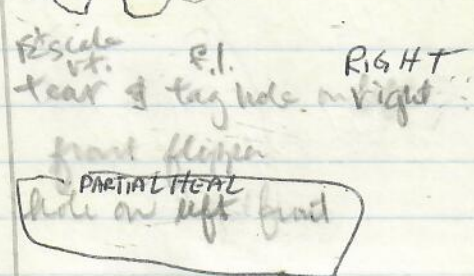 scale
rt. f.l. RIGHT
tear & tag hole on right
front flipper
PARTIAL HEAL
hole on left front